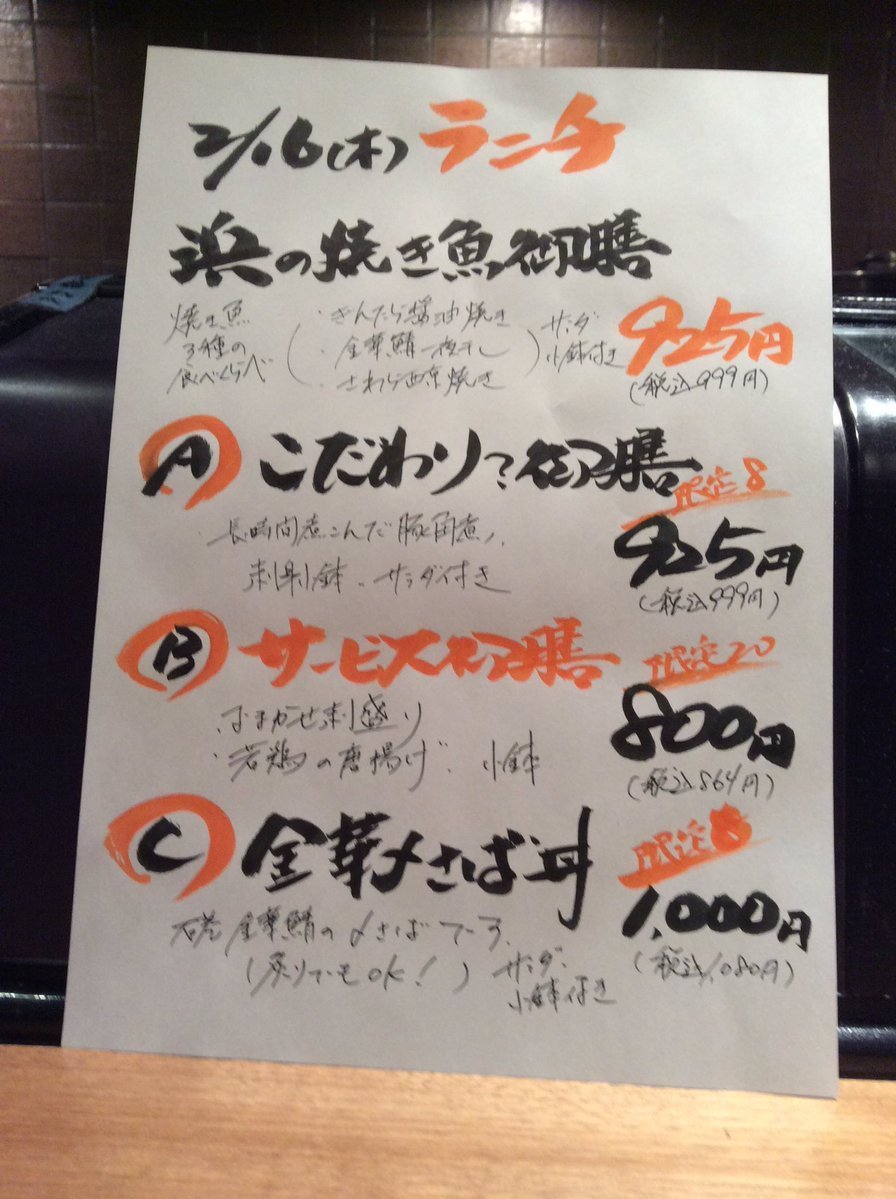 2/16(木) ランチ
浜の焼き魚御膳
焼き魚
3種の
食べくらべ
(・ぎんだら醤油焼き
・金華鯖一夜干し
・さわら西京焼き)
サラダ
小鉢付き
925円
(税込999円)
A こだわり御膳
限定8
長時間煮こんだ豚角煮
刺身小鉢、サラダ付き
925円
(税込999円)
B サービス御膳
限定20
・おまかせ刺盛り
・若鶏の唐揚げ、小鉢
800円
(税込864円)
C 金華〆さば丼
限定
石巻金華鯖の〆さばです。
(炙りでもOK!)
サラダ、
小鉢付き
1,000円
(税込1,080円)